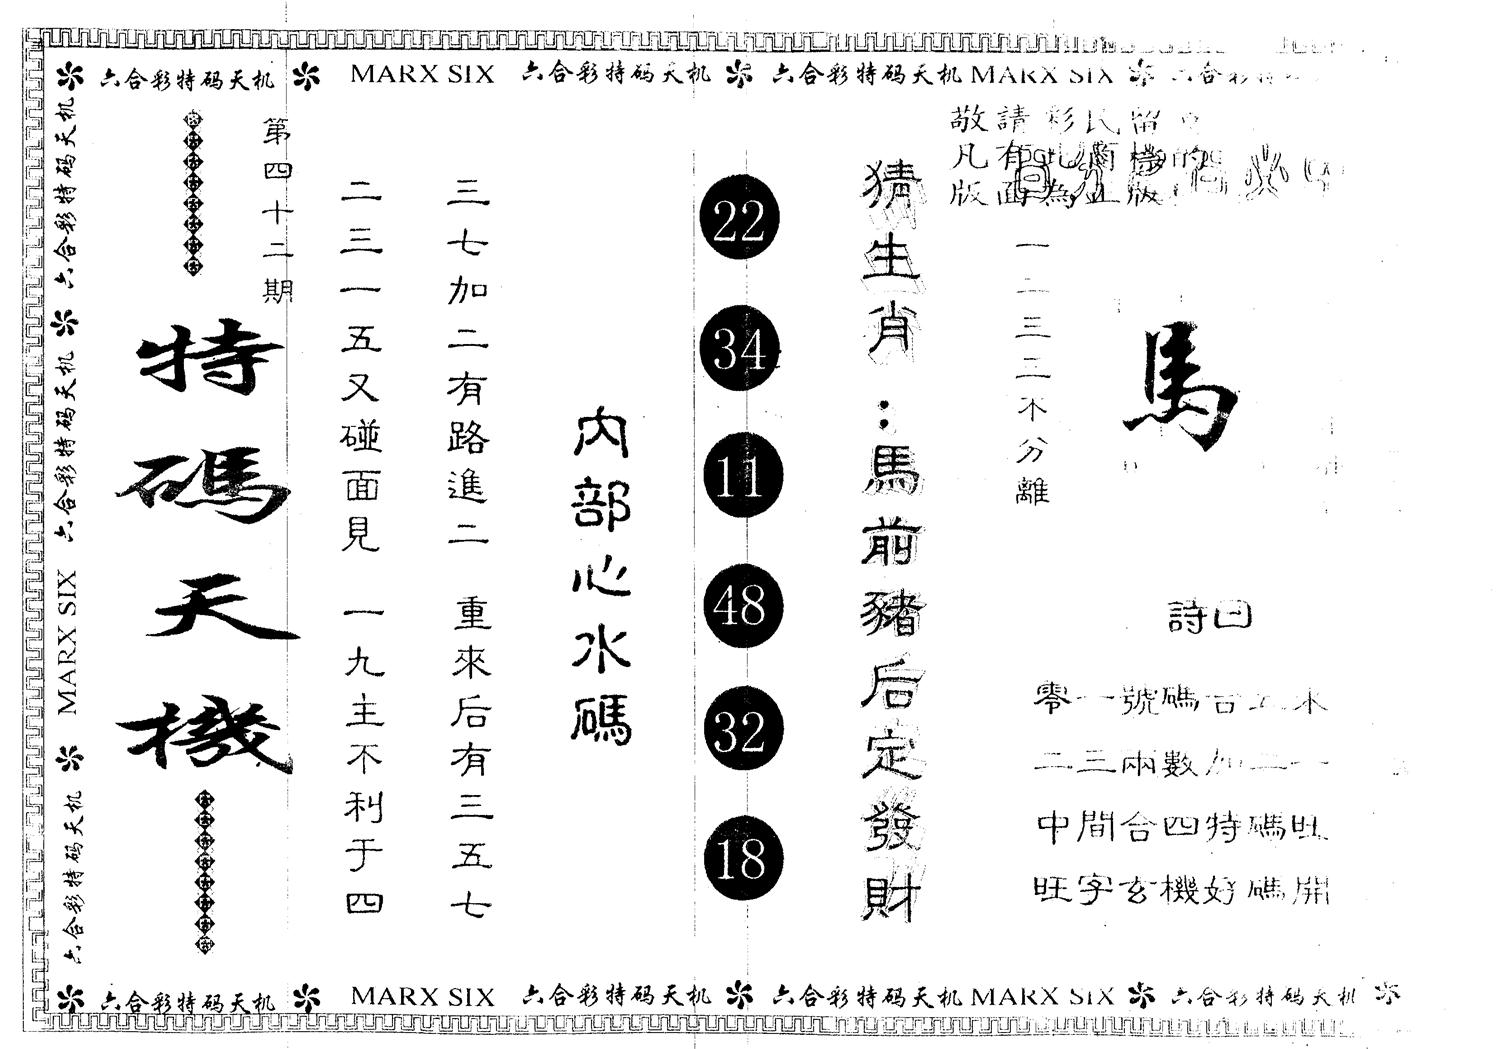 六合彩特码天机 MARX SIX 六合彩特码天机 六合彩特码天机 MARX SIX 六合彩
六合彩特码天机
六合彩特码天机
MARX SIX
六合彩特码天机
第四十二期
特碼天機
二三一五又碰面見 一九主不利于四
三七加二有路進二 重來后有三五七
內部心水碼
22
34
11
48
32
18
猜生肖：馬前豬后定發財
敬請彩民留
凡有
版面為正版
一二三三不分離
馬
詩曰
零一號碼合五來
二三兩數加二一
中間合四特碼旺
旺字玄機好碼開
六合彩特码天机 MARX SIX 六合彩特码天机 六合彩特码天机 MARX SIX 六合彩特码天机